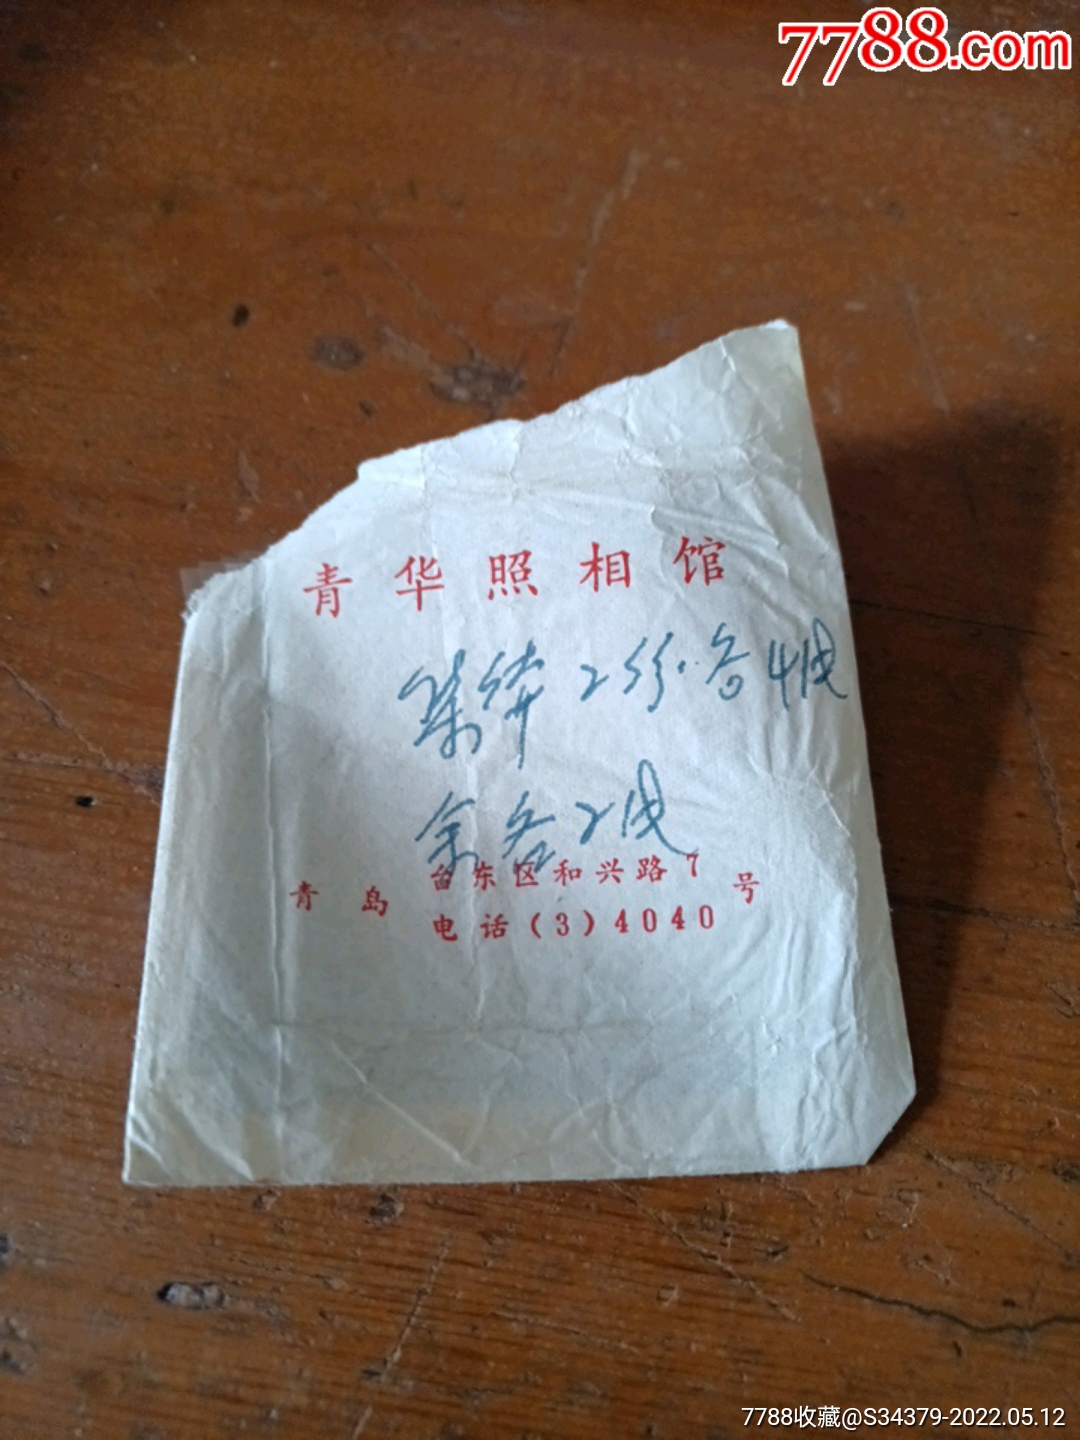 7788.com
青华照相馆
2份·各4张
余各2张
青岛 台东区和兴路7号
电话(3)4040
7788收藏@S34379-2022.05.12